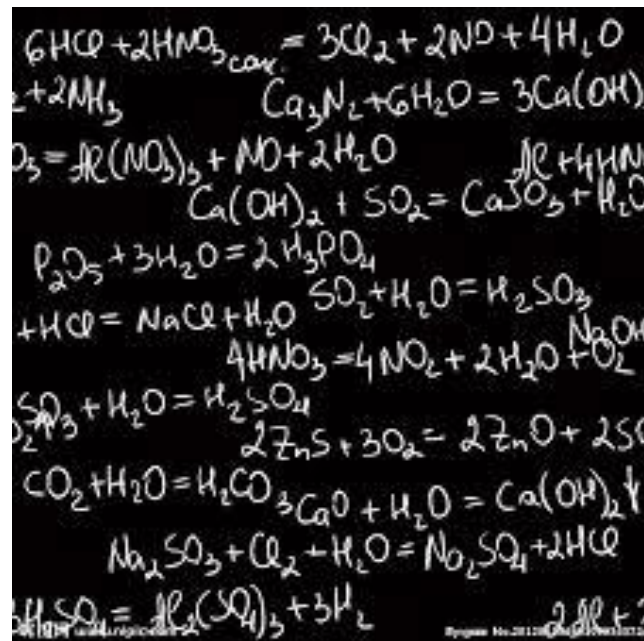 6HCl + 2HNO₃ = 3Cl₂ + 2NO + 4H₂O
+ 2NH₃ Ca₃N₂ + 6H₂O = 3Ca(OH)
O₃ = Al(NO₃)₃ + NO + 2H₂O Al + 4HN
Ca(OH)₂ + SO₂ = CaSO₃ + H₂O
P₂O₅ + 3H₂O = 2H₃PO₄
SO₂ + H₂O = H₂SO₃
+ HCl = NaCl + H₂O NaOH
4HNO₃ = 4NO₂ + 2H₂O + O₂
SO₃ + H₂O = H₂SO₄
2ZnS + 3O₂ = 2ZnO + 2SO
CO₂ + H₂O = H₂CO₃ CaO + H₂O = Ca(OH)₂↓
Na₂SO₃ + Cl₂ + H₂O = Na₂SO₄ + 2HCl
3H₂SO₄ = Al₂(SO₄)₃ + 3H₂ 2Al +